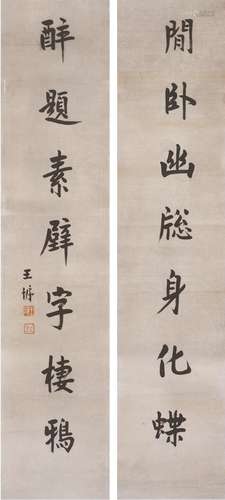 閒卧幽牎身化蝶
醉題素壁字棲鴉
王塀